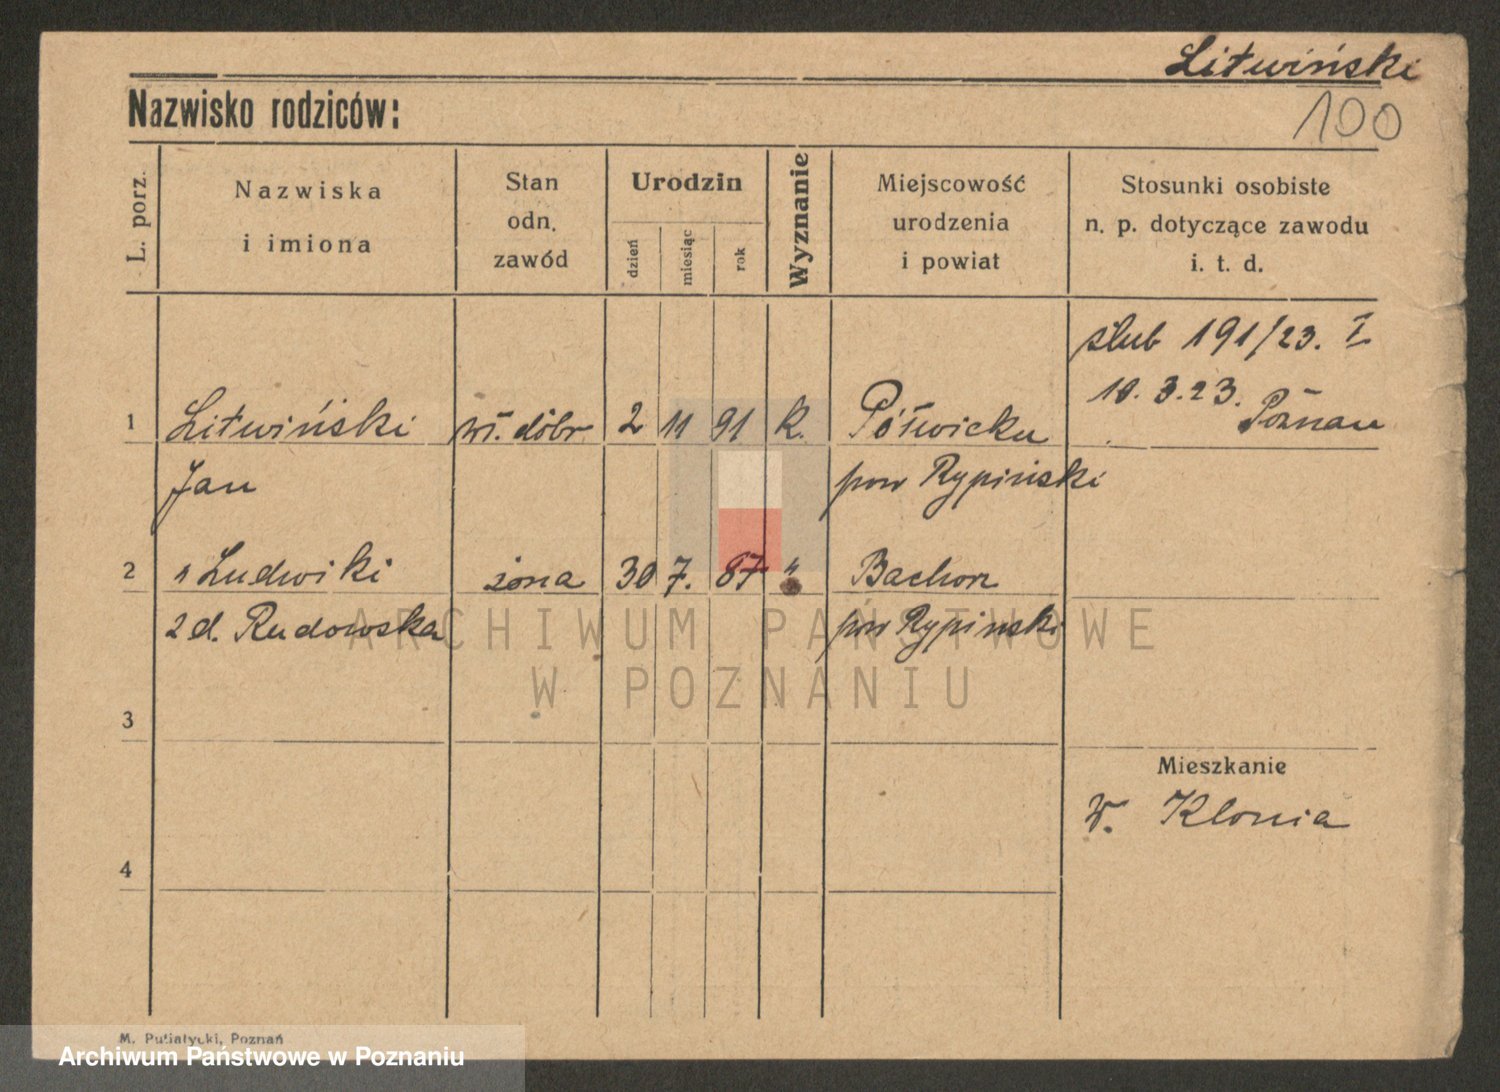 Litwiński
Nazwisko rodziców:
100
L. porz.
Nazwiska
i imiona
Stan
odn.
zawód
Urodzin
dzień
miesiąc
rok
Wyznanie
Miejscowość
urodzenia
i powiat
Stosunki osobiste
n. p. dotyczące zawodu
i. t. d.
ślub 191/23. I
10.3.23. Poznań
1 Litwiński wł. dóbr 2 11 91 K.
Jan pow Rypiński
2 Ludwiki żona 30 7. 87 "
2 d. Rudowska pow Rypiński
ARCHIWUM PAŃSTWOWE
W POZNANIU
3
Mieszkanie
W. Klonia
4
M. Putiatycki, Poznań
Archiwum Państwowe w Poznaniu